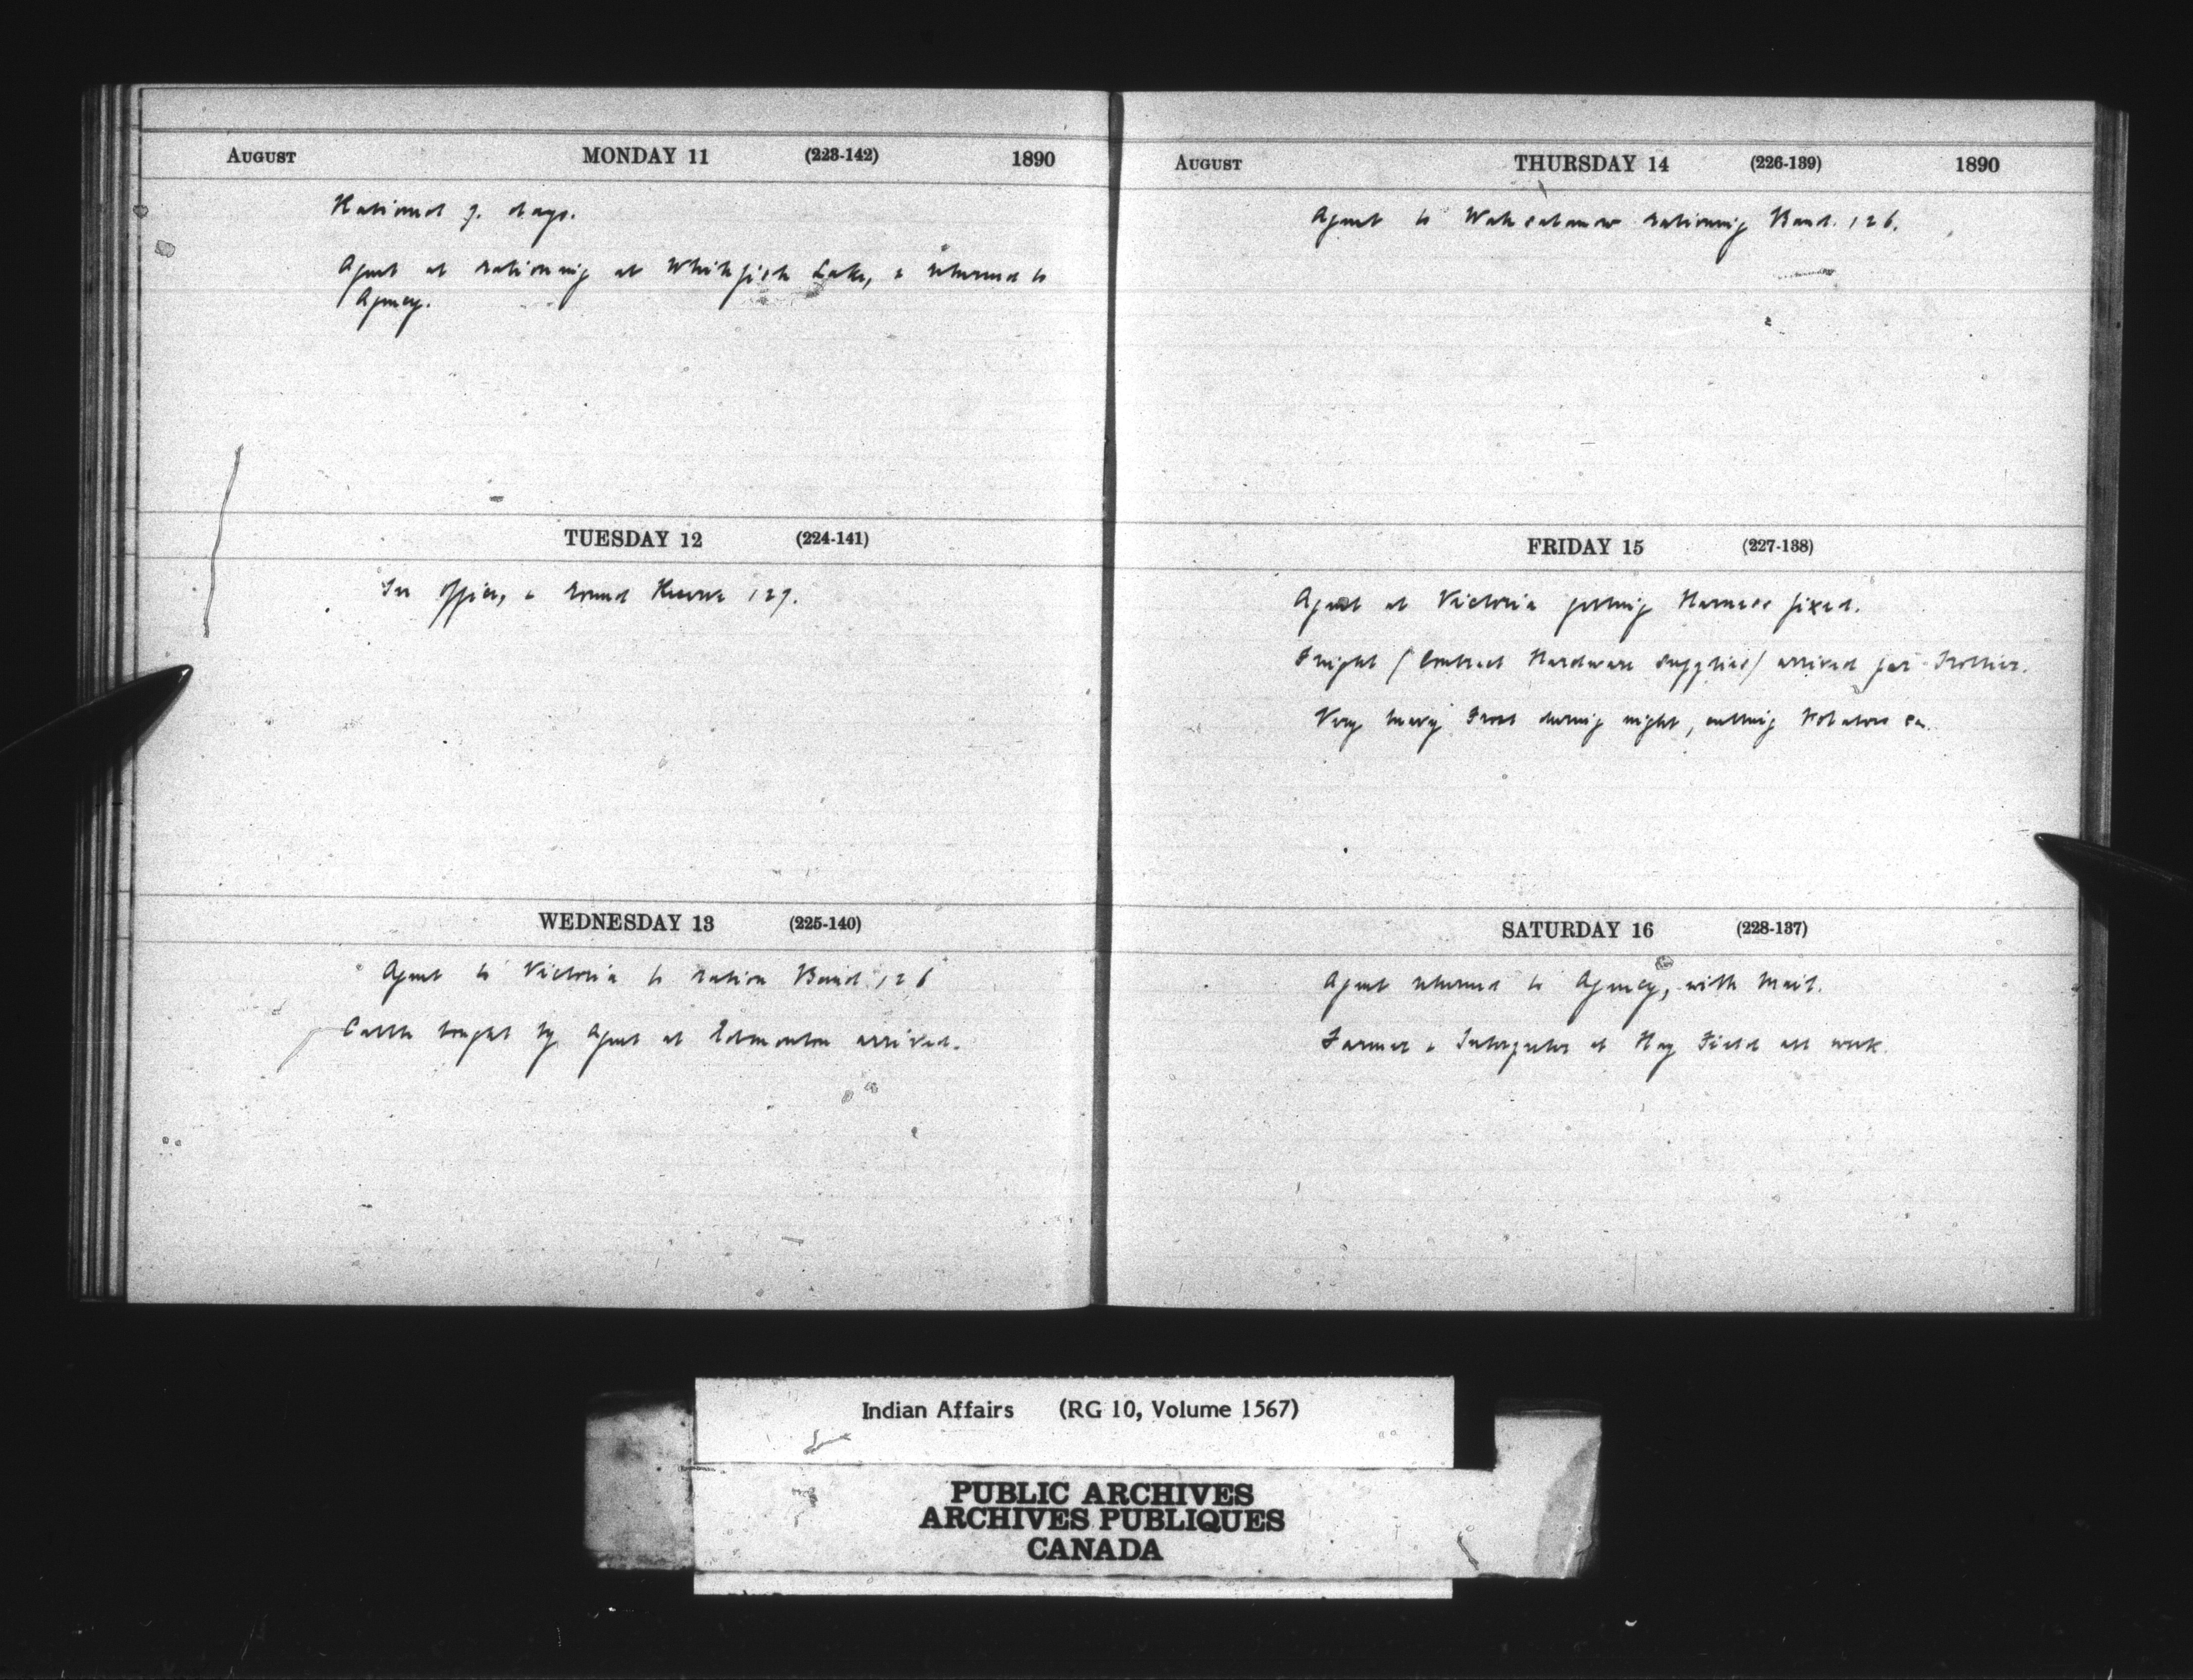 AUGUST MONDAY 11 (223-142) 1890
Rationed 7. days.
Agent at rationing at Whitefish Lake, & returned to
Agency.
TUESDAY 12 (224-141)
In office, & round Reserve 127.
WEDNESDAY 13 (225-140)
Agent to Victoria to ration Band 126
Cattle bought by Agent at Edmonton arrived.
AUGUST THURSDAY 14 (226-139) 1890
Agent to Wahsatanow rationing Band 126.
FRIDAY 15 (227-138)
Agent at Victoria getting Harness fixed.
Freight / Contract Hardware supplies / arrived per
Very heavy Frost during night, cutting Potatoes &c.
SATURDAY 16 (228-137)
Agent returned to Agency, with Mail.
Farmer & Interpreter at Hay Field all week.
Indian Affairs (RG 10, Volume 1567)
PUBLIC ARCHIVES
ARCHIVES PUBLIQUES
CANADA